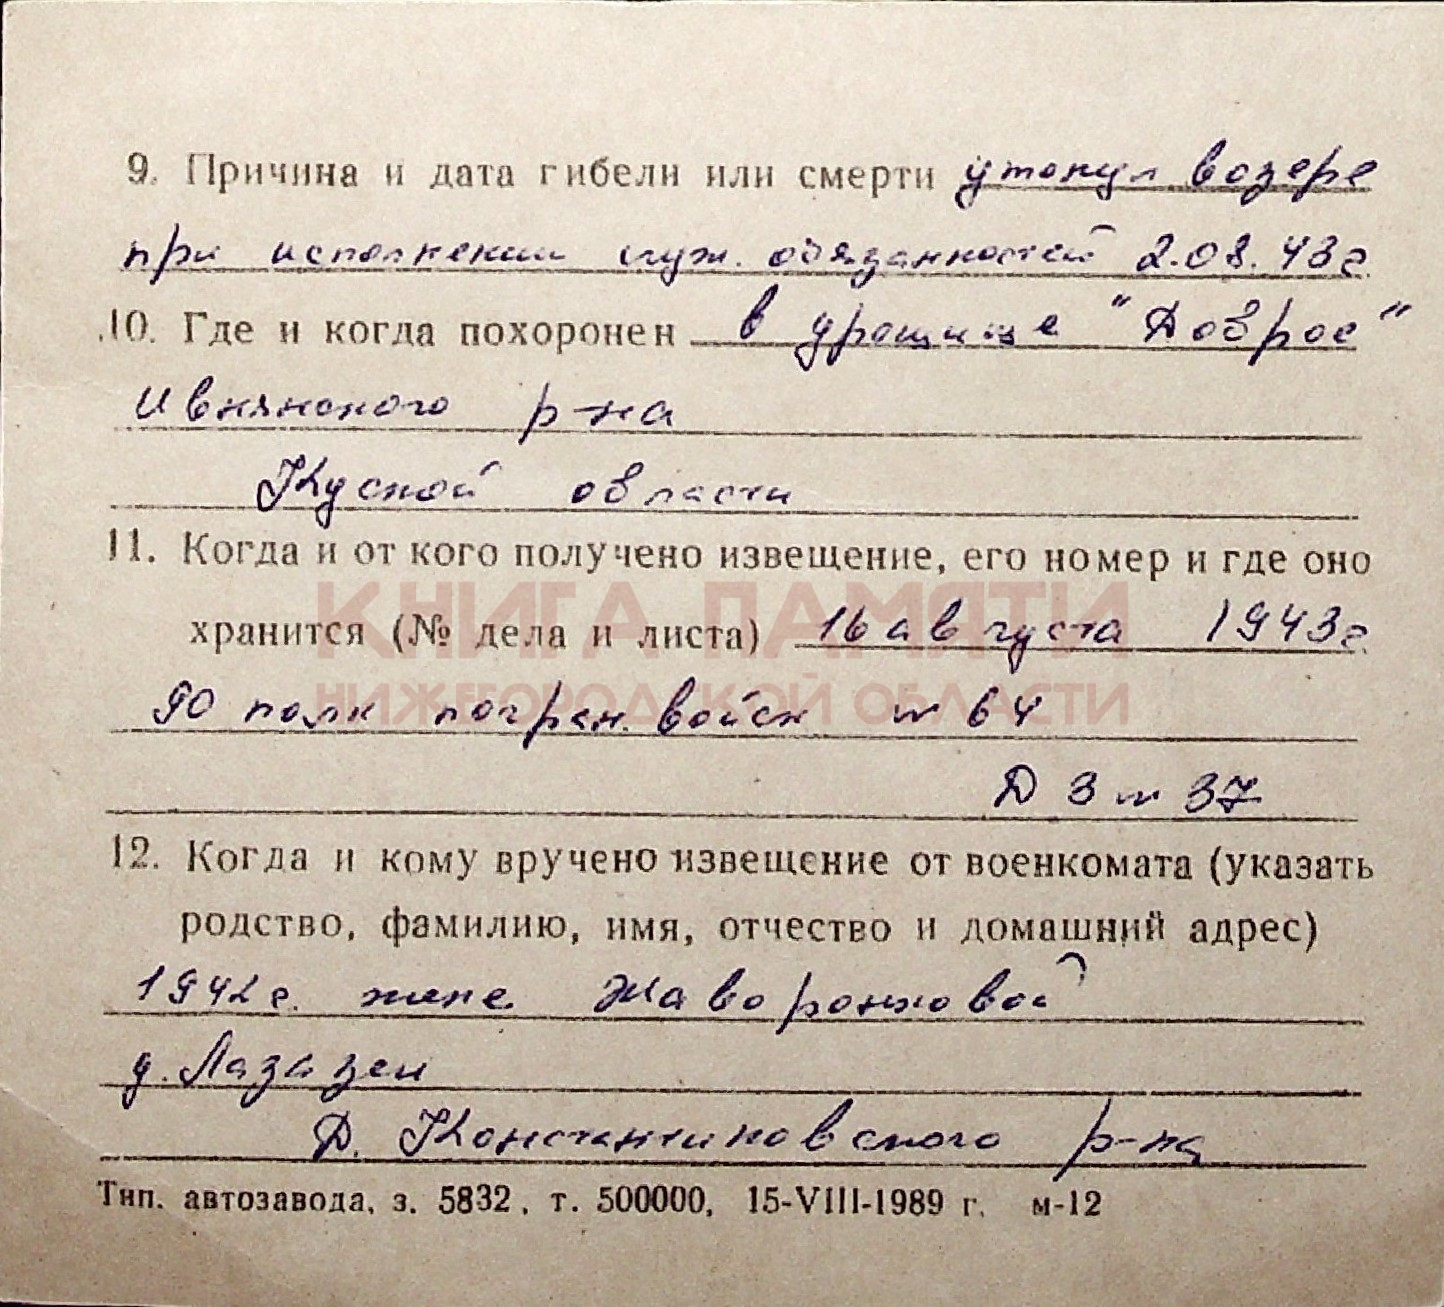 9. Причина и дата гибели или смерти утонул в озере
при исполнении служ. обязанностей 2.08.43г.
10. Где и когда похоронен в урощище "Доброе"
Ивнянского р-на
Кусской области
11. Когда и от кого получено извещение, его номер и где оно
КНИГА ПАМЯТИ
хранится (№ дела и листа) 16 августа 1943г.
НИЖЕГОРОДСКОЙ ОБЛАСТИ
90 полк погран. войск № 64
Д 3 № 37
12. Когда и кому вручено извещение от военкомата (указать
родство, фамилию, имя, отчество и домашний адрес)
1942г. жене Жаворонковой
д.
Д. Константиновского р-на
Тип. автозавода, з. 5832, т. 500000, 15-VIII-1989 г. м-12